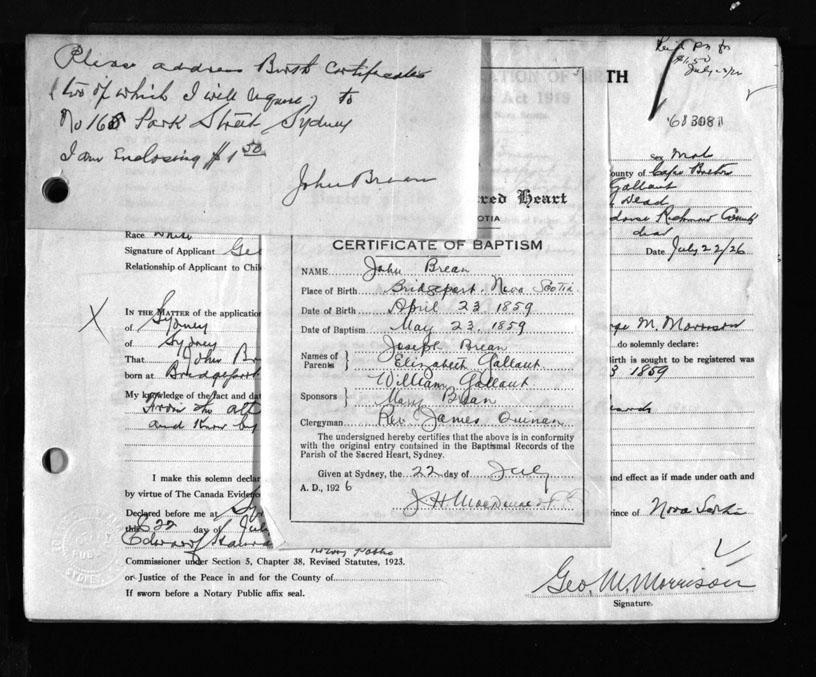 Please address Birth Certificates
(two of which I will require) to
No 165 Park Street Sydney
I am Enclosing $1 50
John Brean
July
TION OF BIRTH
Act 1919
683081
Sex Male
County of Cape Breton
Gallant
Dead
Richmond County
dead
Date July 22/26
Race White
Signature of Applicant Geo
Relationship of Applicant to Chil
Sacred Heart
SCOTIA
CERTIFICATE OF BAPTISM
NAME John Brean
Place of Birth Bridgeport, Nova Scotia
Date of Birth April 23 1859
Date of Baptism May 23, 1859
Names of Parents } Joseph Brean
Elizabeth Gallant
Sponsors } William Gallant
Mary Brean
Clergyman Rev. James Quinan
The undersigned hereby certifies that the above is in conformity
with the original entry contained in the Baptismal Records of the
Parish of the Sacred Heart, Sydney.
Given at Sydney, the 22 day of July
A. D., 1926
IN THE MATTER of the application
of Sydney
of Sydney
That John Br
born at Bridgeport
My knowledge of the fact and dat
from the
and know by
I make this solemn declar
by virtue of The Canada Eviden
Declared before me at Sy
this 22 day of Jul
Edward
Notary Public
Commissioner under Section 5, Chapter 38, Revised Statutes, 1923.
or Justice of the Peace in and for the County of
If sworn before a Notary Public affix seal.
M. Morrison
do solemnly declare:
Birth is sought to be registered was
3 1859
and effect as if made under oath and
Province of Nova Scotia
Geo. M. Morrison
Signature.